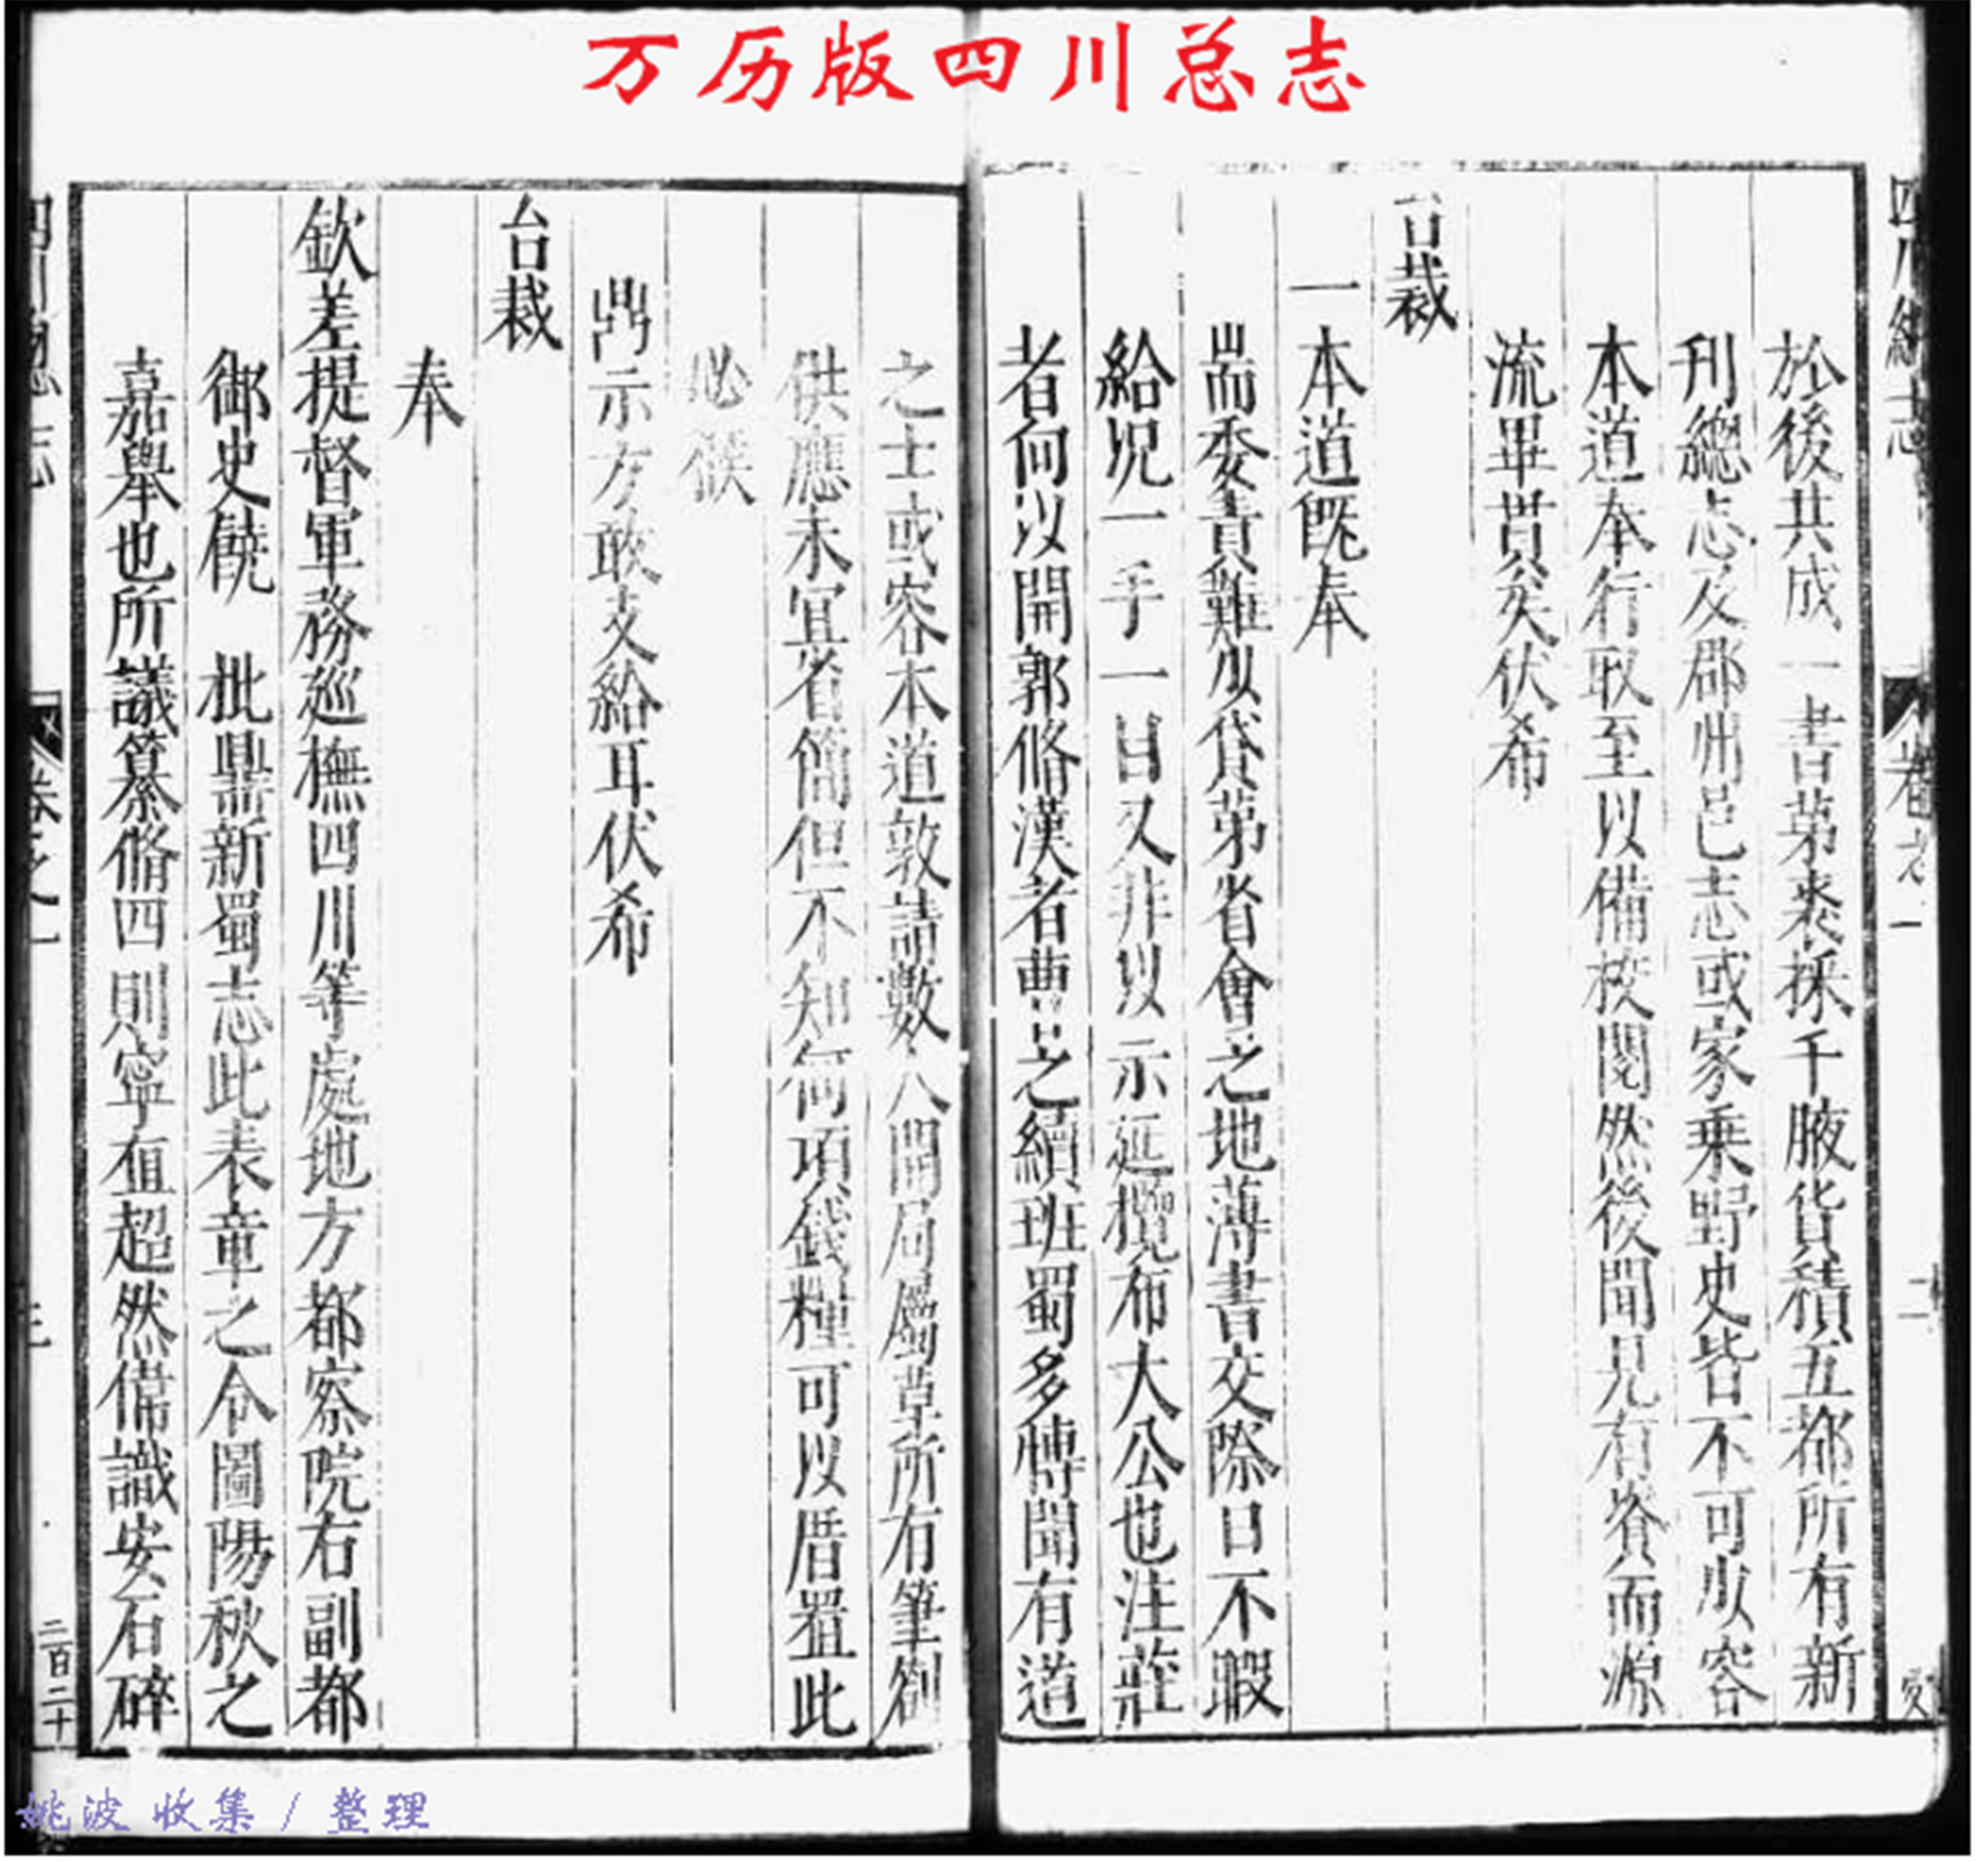 万历版四川总志
於後共成一書苐裘採千腋貨積五都所有新
刋總志及郡州邑志或家乗野史皆不可㕥容
本道奉行取至以備校閱然後聞見有資而源
流畢貫矣伏希
台裁
一本道旣奉
耑委責難㕥貸苐省會之地薄書交際日不暇
給况一手一目又非㕥示延攬布大公也注莊
者何㕥開郭脩漢者曹之續班蜀多愽聞有道
之士或容本道敦請數人開局屬草所有筆劄
供應未冝省簡但不知何項錢糧可㕥厝置此
必候
鼎示方敢支給耳伏希
台裁
奉
欽差提督軍務巡撫四川等處地方都察院右副都
御史饒 批鼎新蜀志此表章之令圖陽秋之
嘉舉也所議纂脩四則寧直超然偹識安石碎
四川總志
卷之一
二百二十
姚波 收集 / 整理